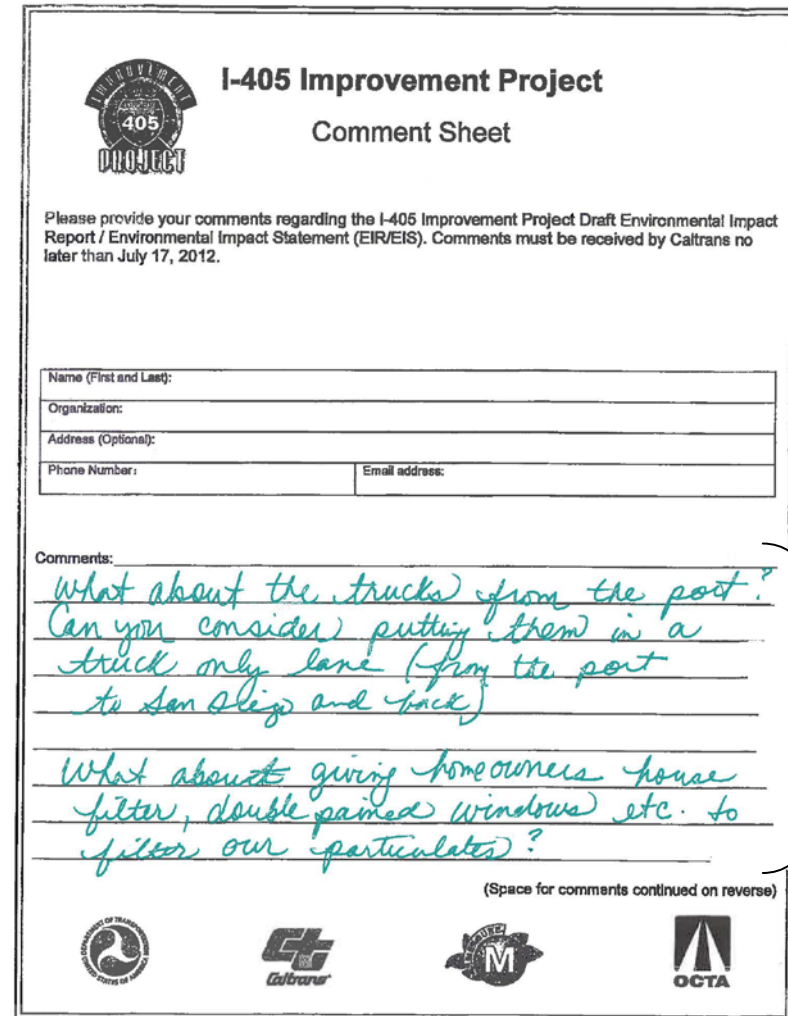 IMPROVEMENT
405
PROJECT
I-405 Improvement Project
Comment Sheet
Please provide your comments regarding the I-405 Improvement Project Draft Environmental Impact
Report / Environmental Impact Statement (EIR/EIS). Comments must be received by Caltrans no
later than July 17, 2012.
Name (First and Last):
Organization:
Address (Optional):
Phone Number:
Email address:
Comments:
What about the trucks from the port?
Can you consider putting them in a
truck only lane (from the port
to San Diego and back)
What about giving homeowners house
filter, double pained windows etc. to
filter our particulates?
(Space for comments continued on reverse)
DEPARTMENT OF TRANSPORTATION
UNITED STATES OF AMERICA
Caltrans
M
OCTA